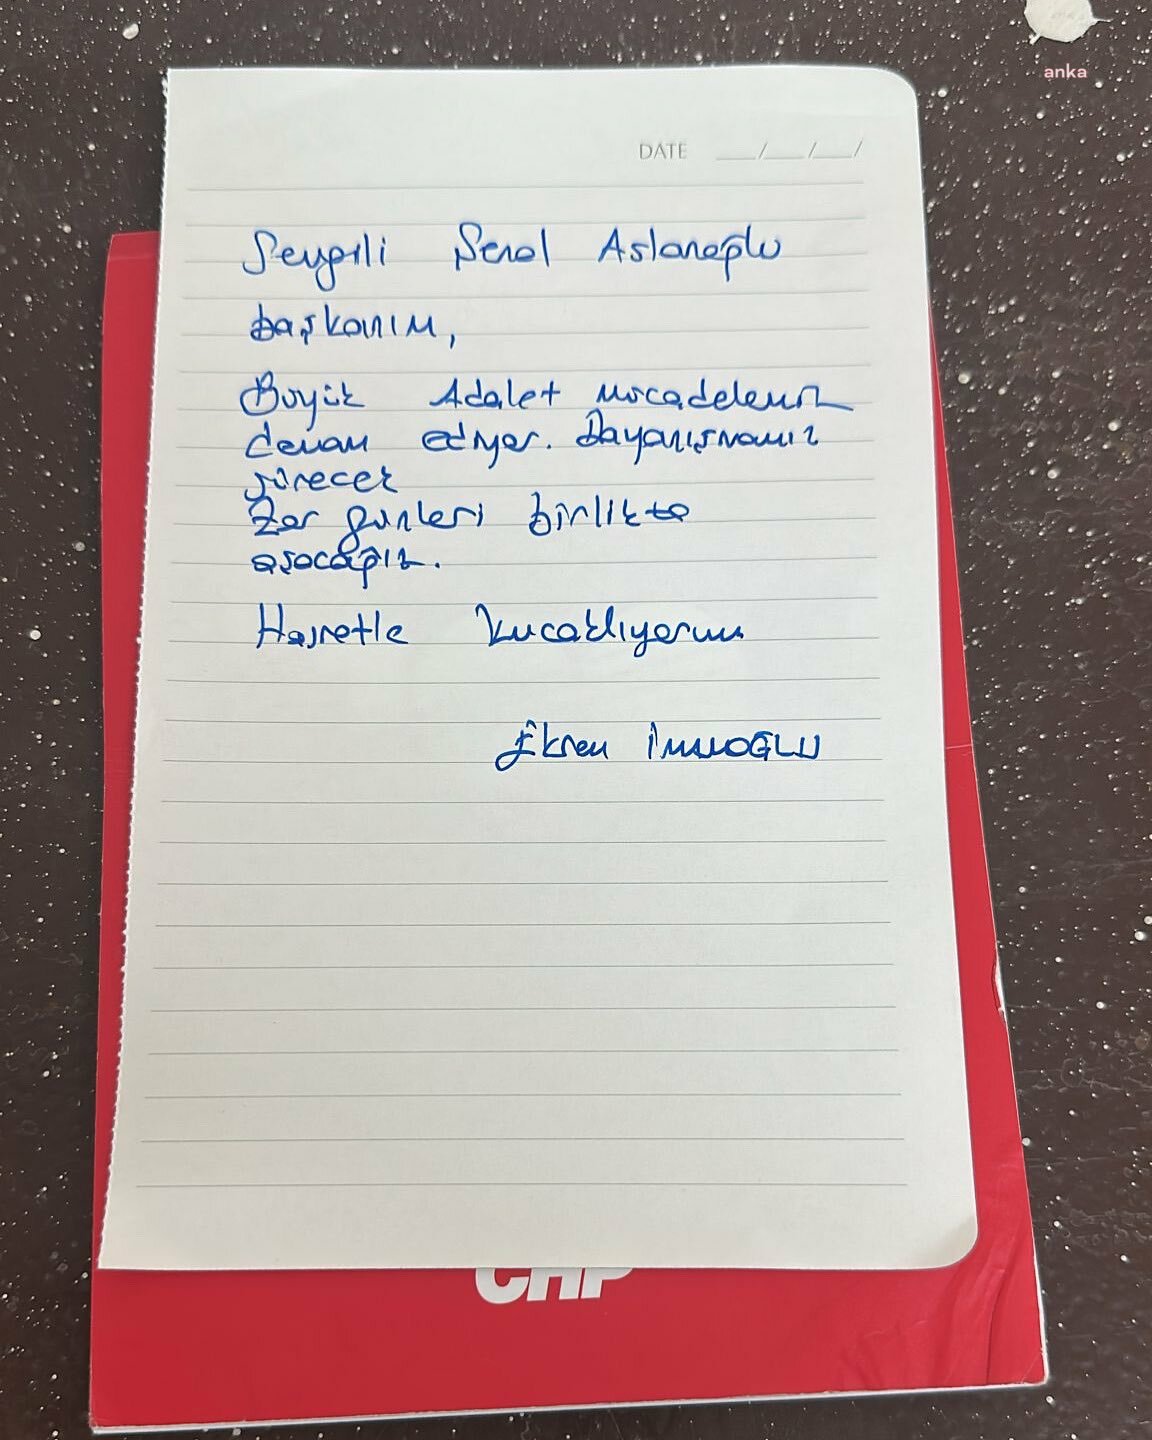 anka
DATE __/__/__/
Sevgili Şenol Aslanoğlu
başkanım,
Büyük Adalet mücadelemiz
devam ediyor. Dayanışmamız
sürecek
Zor günleri birlikte
aşacağız.
Hasretle kucaklıyorum
Ekrem İMAMOĞLU
CHP